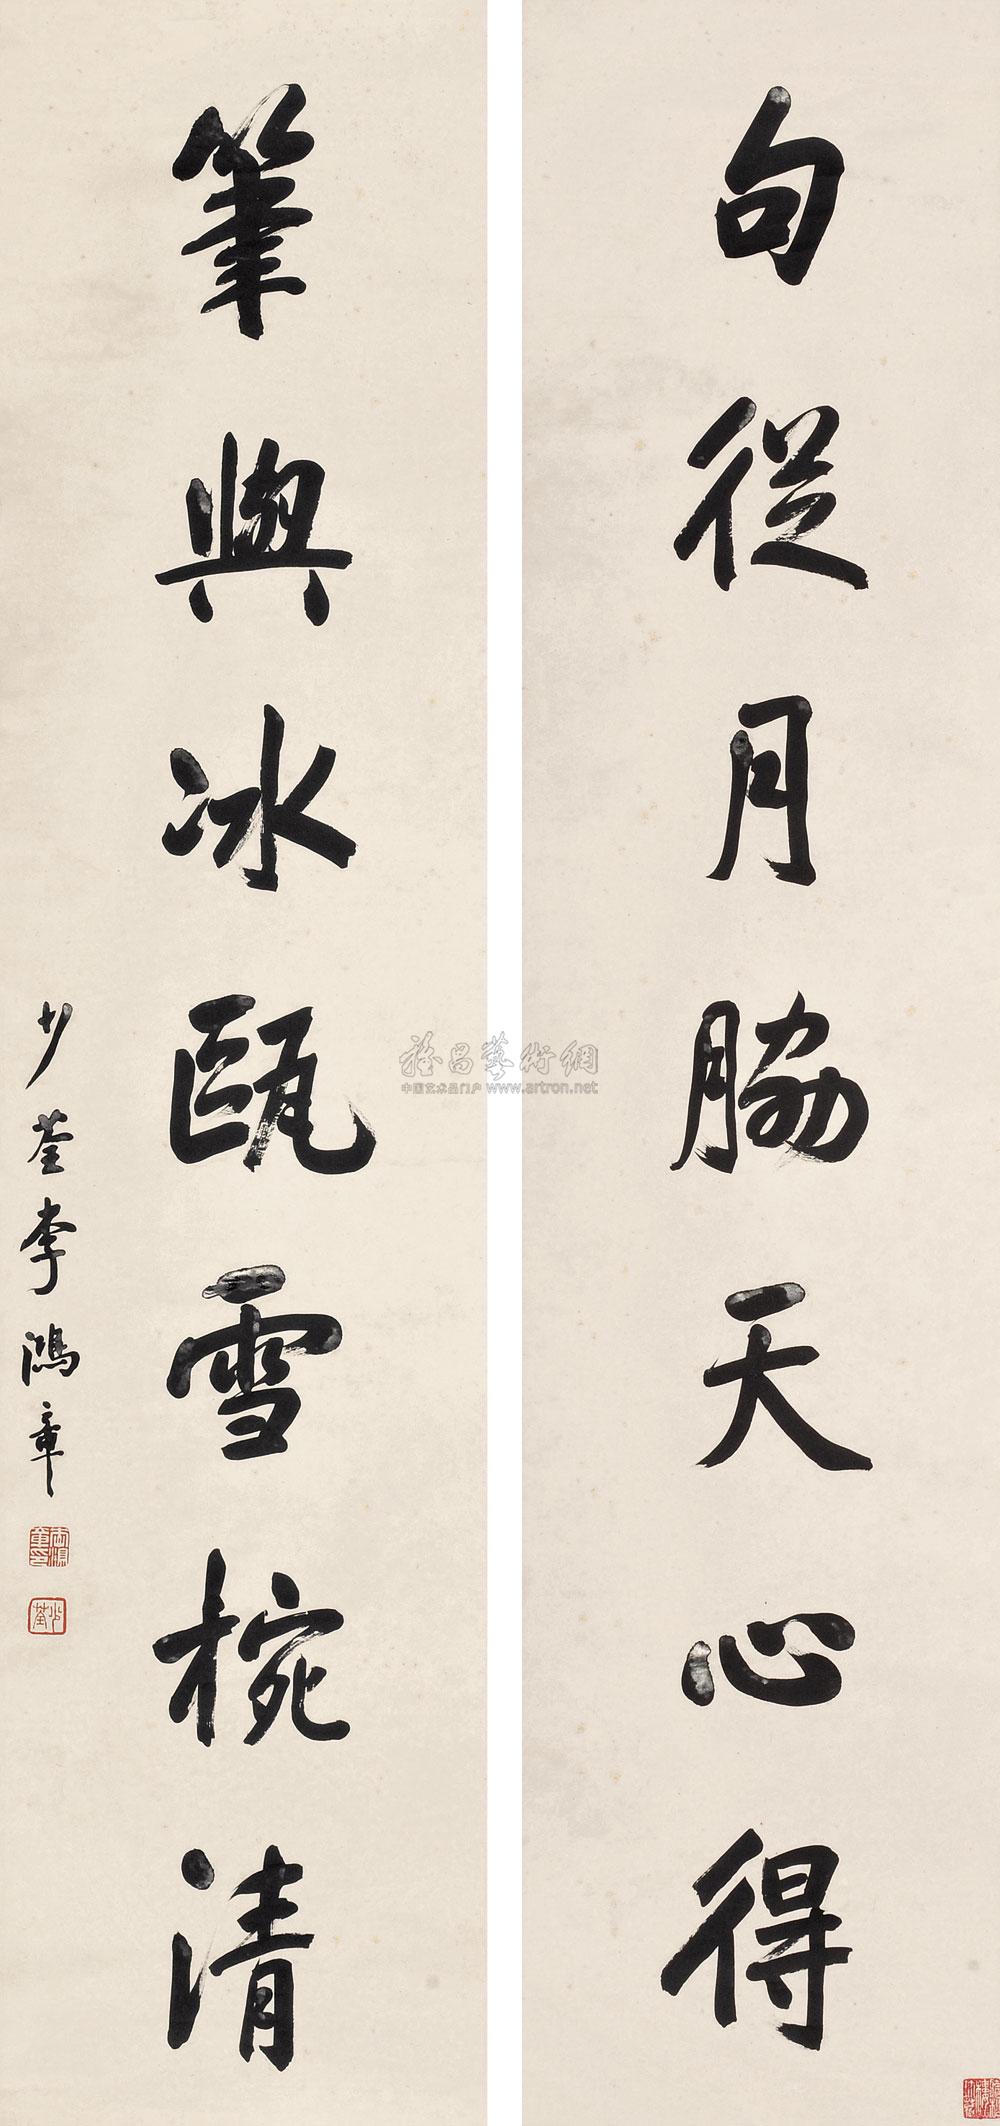 句從月脇天心得
筆與冰甌雪椀清
少荃李鴻章
雅昌藝術網
中国艺术品门户 www.artron.net
少荃